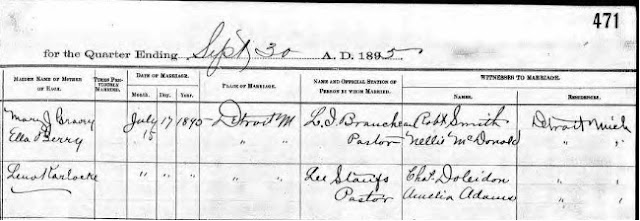 471
for the Quarter Ending Sept 30 A. D. 1895
MAIDEN NAME OF MOTHER OF EACH. TIMES PREVIOUSLY MARRIED. DATE OF MARRIAGE. PLACE OF MARRIAGE. NAME AND OFFICIAL STATION OF PERSON BY WHOM MARRIED. WITNESSES TO MARRIAGE.
Month. Day. Year. NAMES. RESIDENCES.
Mary J July 17 1895 Detroit M L. I. Robt Smith Detroit Mich
Ella Berry " 15 " " Pastor Nellie McDonald " "
Lena " " " " " Lee Chas "
Pastor Amelia Adams "